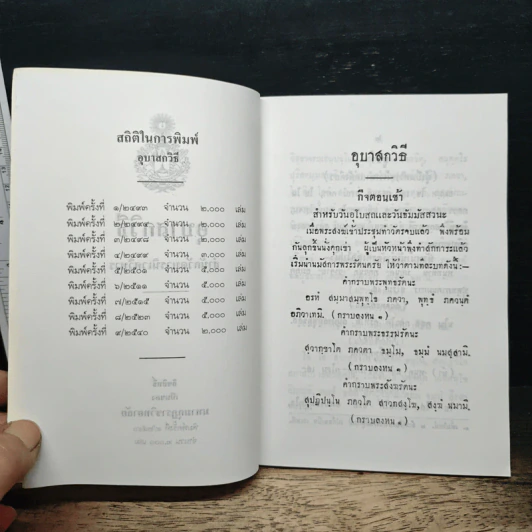 สถิติในการพิมพ์
อุบาสกวิธี
พิมพ์ครั้งที่ ๑/๒๔๙๓ จำนวน ๒,๐๐๐ เล่ม
พิมพ์ครั้งที่ จำนวน ๒,๐๐๐ เล่ม
พิมพ์ครั้งที่ ๓/๒๔๙๘ จำนวน ๒,๐๐๐ เล่ม
พิมพ์ครั้งที่ ๔/๒๔๙๙ จำนวน ๓,๐๐๐ เล่ม
พิมพ์ครั้งที่ จำนวน ๕,๐๐๐ เล่ม
พิมพ์ครั้งที่ ๖/๒๕๑๑ จำนวน ๕,๐๐๐ เล่ม
พิมพ์ครั้งที่ ๗/๒๕๑๕ จำนวน ๕,๐๐๐ เล่ม
พิมพ์ครั้งที่ ๘/๒๕๒๓ จำนวน ๕,๐๐๐ เล่ม
พิมพ์ครั้งที่ ๙/๒๕๔๐ จำนวน ๒,๐๐๐ เล่ม
อุบาสกวิธี
กิจตอนเช้า
สำหรับวันอุโบสถและวันธัมมัสสวนะ
เมื่อพระสงฆ์เข้าประชุมทำวัตรจบแล้ว พึงพร้อม
กันลุกขึ้นนั่งคุกเข่า ผู้เป็นหัวหน้าพึงทำสักการะแล้ว
เริ่มนำนมัสการพระรัตนตรัย ให้ว่าตามทีละบทดังนี้:–
คำกราบพระพุทธรัตนะ
อรหํ สมฺมาสมฺพุทฺโธ ภควา, พุทฺธํ ภควนฺตํ
อภิวาเทมิ. (กราบลงหน ๑)
คำกราบพระธรรมรัตนะ
สฺวากฺขาโต ภควตา ธมฺโม, ธมฺมํ นมสฺสามิ.
(กราบลงหน ๑)
คำกราบพระสังฆรัตนะ
สุปฏิปนฺโน ภควโต สาวกสงฺโฆ, สงฺฆํ นมามิ.
(กราบลงหน ๑)